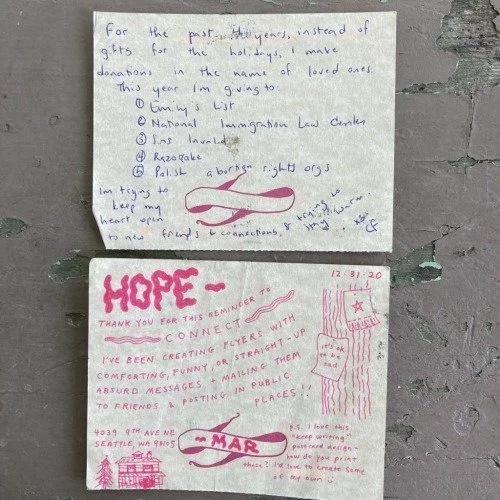 For the past years, instead of
gifts for the holidays, I make
donations in the name of loved ones.
This year I'm giving to:
① Emily's List
② National Immigration Law Center
③ Sins Invalid
④ Razorcake
⑤ Polish abortion rights orgs
Im trying to
keep my
heart open
to new friends & connections, &
trying to
stay warm.
HOPE-
12·31·20
THANK YOU FOR THIS REMINDER TO
CONNECT
I'VE BEEN CREATING FLYERS WITH
COMFORTING, FUNNY, OR STRAIGHT-UP
ABSURD MESSAGES + MAILING THEM
TO FRIENDS & POSTING IN PUBLIC
PLACES!!
it's ok
to be
sad
4039 9TH AVE NE
SEATTLE, WA 98105
-MAR
p.s. I love this
"keep writing"
postcard design-
how do you print
these? I'd love to create some
of my own